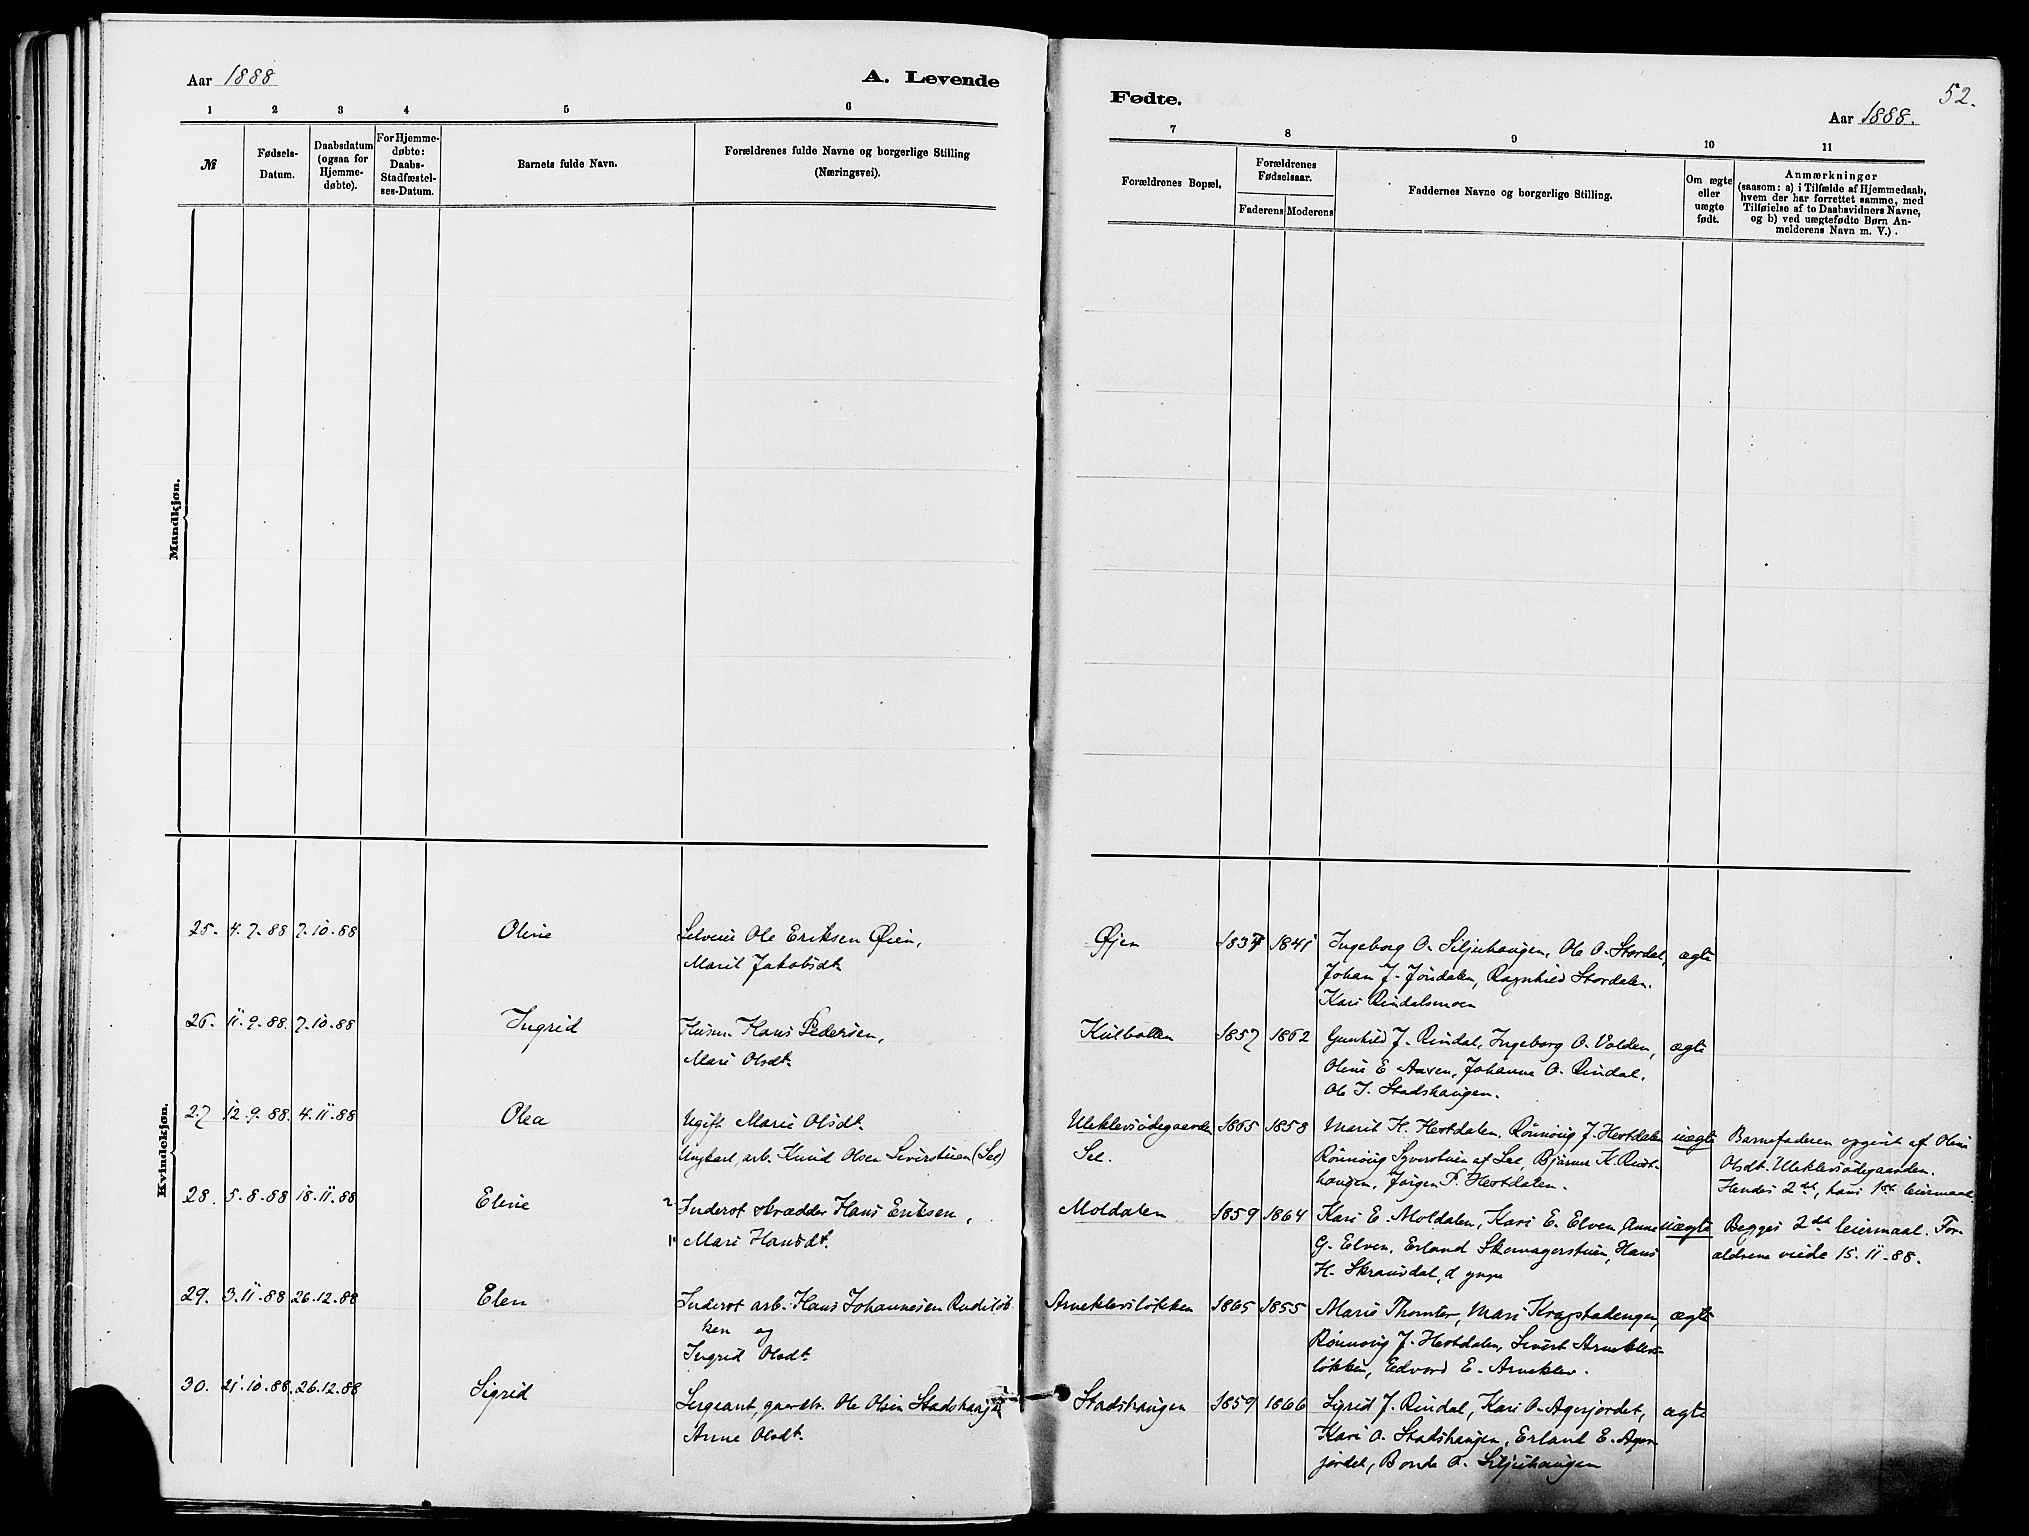 Aar 1888
A. Levende
1 2 3 4 5 6
№
Fødsels-
Datum.
Daabsdatum
(ogsaa for
Hjemme-
døbte).
For Hjemme-
døbte:
Daabs-
Stadfæstel-
ses-Datum.
Barnets fulde Navn.
Forældrenes fulde Navne og borgerlige Stilling
(Næringsvei).
Mandkjøn.
Kvindekjøn.
25. 4.7.88 7.10.88 Oline
Ole Eriksen Øien,
Marit Jakobsdt.
26. 11.9.88. 7.10.88 Ingrid
Husm. Hans Pedersen,
Mari Olsdt.
27 12.9.88. 4.11.88 Olea
Ugift Marie Olsdt.
Ungkarl, arb. Knud Olsen Siverstuen (Sel)
28. 5.8.88 18.11.88 Eline
2 Inderst skrædder Hans Eriksen,
1 Mari Hansdt.
29. 3.11.88 26.12.88 Elen
Inderst arb. Hans Johannesen Rudsløk-
ken og
Ingrid Olsdt.
30. 21.10.88. 26.12.88 Sigrid
Sergeant, gaardbr. Ole Olsen Stadshaugen
Anne Olsdt.
Fødte.
52.
Aar 1888.
7 8 9 10 11
Forældrenes Bopæl.
Forældrenes
Fødselsaar.
Faderens Moderens
Faddernes Navne og borgerlige Stilling.
Om ægte
eller
uægte
født.
Anmærkninger
(saasom: a) i Tilfælde af Hjemmedaab,
hvem der har forrettet samme, med
Tilføielse af to Daabsvidners Navne,
og b) ved uægtefødte Børn An-
melderens Navn m. V.).
Øjen 1837 1841 Ingeborg O. Siljuhaugen, Ole O. Stordal, ægte
Johan J. Jøndalen, Ragnhild Stordalen.
Kari Rindalsmoen
Kulbotten 1857 1862 Gunhild J. Rindal, Ingeborg O. Volden, ægte
Oline E Aasen, Johanna O. Rindal.
Ole J. Stadshaugen.
Uleklevsødegaarden 1865 1858 Marit H. Hestdalen, Rønnoug J. Hestdalen uægte Barnefaderen opgivet af Oline
Sel. Rønnoug Syverstuen af Sel, Bjørner K. Rust-
Olsdt. Uleklevsødegaarden.
haugen, Jørgen P. Hestdalen.
Hendes 2det, hans 1ste leiermaal
Moldalen 1859 1864 Kari E. Moldalen, Kari E. Elven, Anne uægte Begges 2det leiermaal. For-
G. Elven, Erland Skomagerstuen, Hans
ældrene viede 15.11.88.
H. Skramsdal, d yngre
Arneklevsløkken 1865 1855 Marie Thomter, Mari Kragstadengen, ægte
Rønnoug J. Hestdalen, Sivert Arneklevs-
løkken, Edvard E. Arneklev.
Stadshaugen 1859 1866 Sigrid J. Rindal, Kari O. Agerjordet, ægte
Kari O. Stadshaugen, Erland E. Ager-
jordet, Bonde O. Siljuhaugen